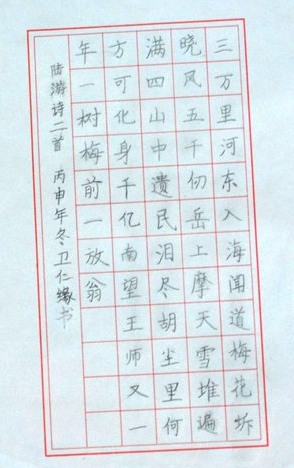 三万里河东入海闻道梅花坼
晓风五千仞岳上摩天雪堆遍
满四山中遗民泪尽胡尘里何
方可化身千亿南望王师又一
年一树梅前一放翁
陆游诗二首 丙申年冬卫仁缘书